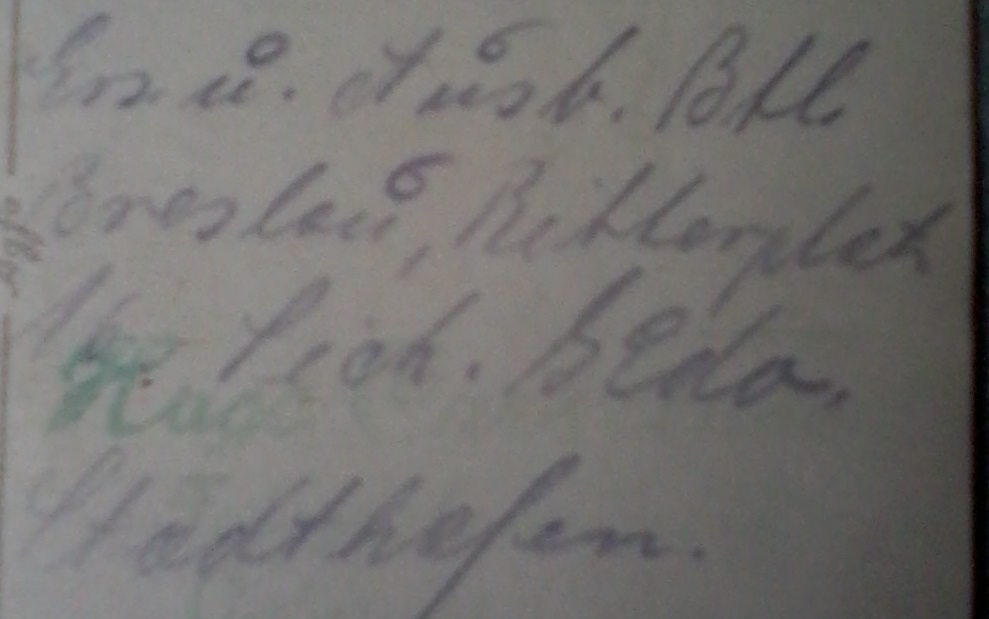 Ers. u. Ausb. Btl.
Breslau, Ritterplatz
Sich.
Stadthafen.